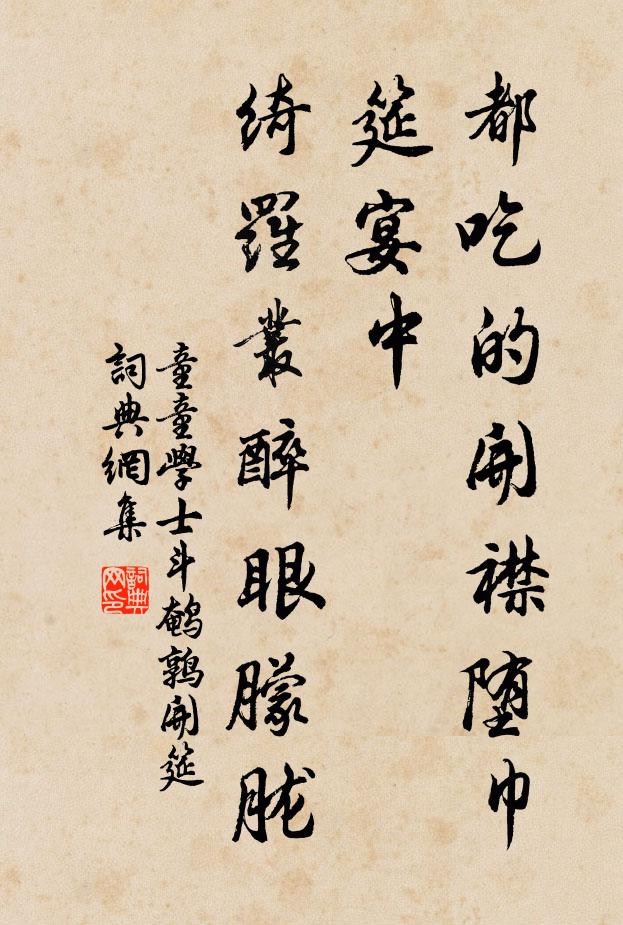 都吃的開襟堕巾
筵宴中
綺羅叢醉眼朦朧
童童學士斗鵪鶉開筵
詞典網集
詞典網印